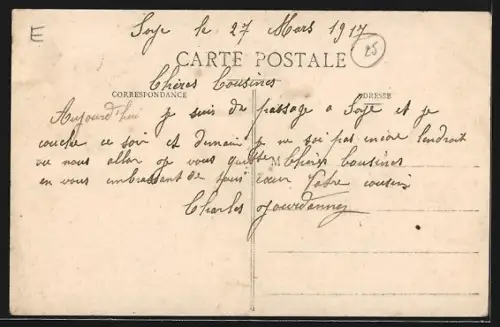 E
Soye le 27 Mars 1917
25
CARTE POSTALE
Chères Cousines
CORRESPONDANCE
ADRESSE
Aujourd'hui je suis de passage a Soye et je
couche ce soir et demain je ne sai pas encore lendroit
ou nous allon je vous quitte Chères Cousines
M
en vous embrassant de tous cœur Votre cousin
Charles Jourdanney